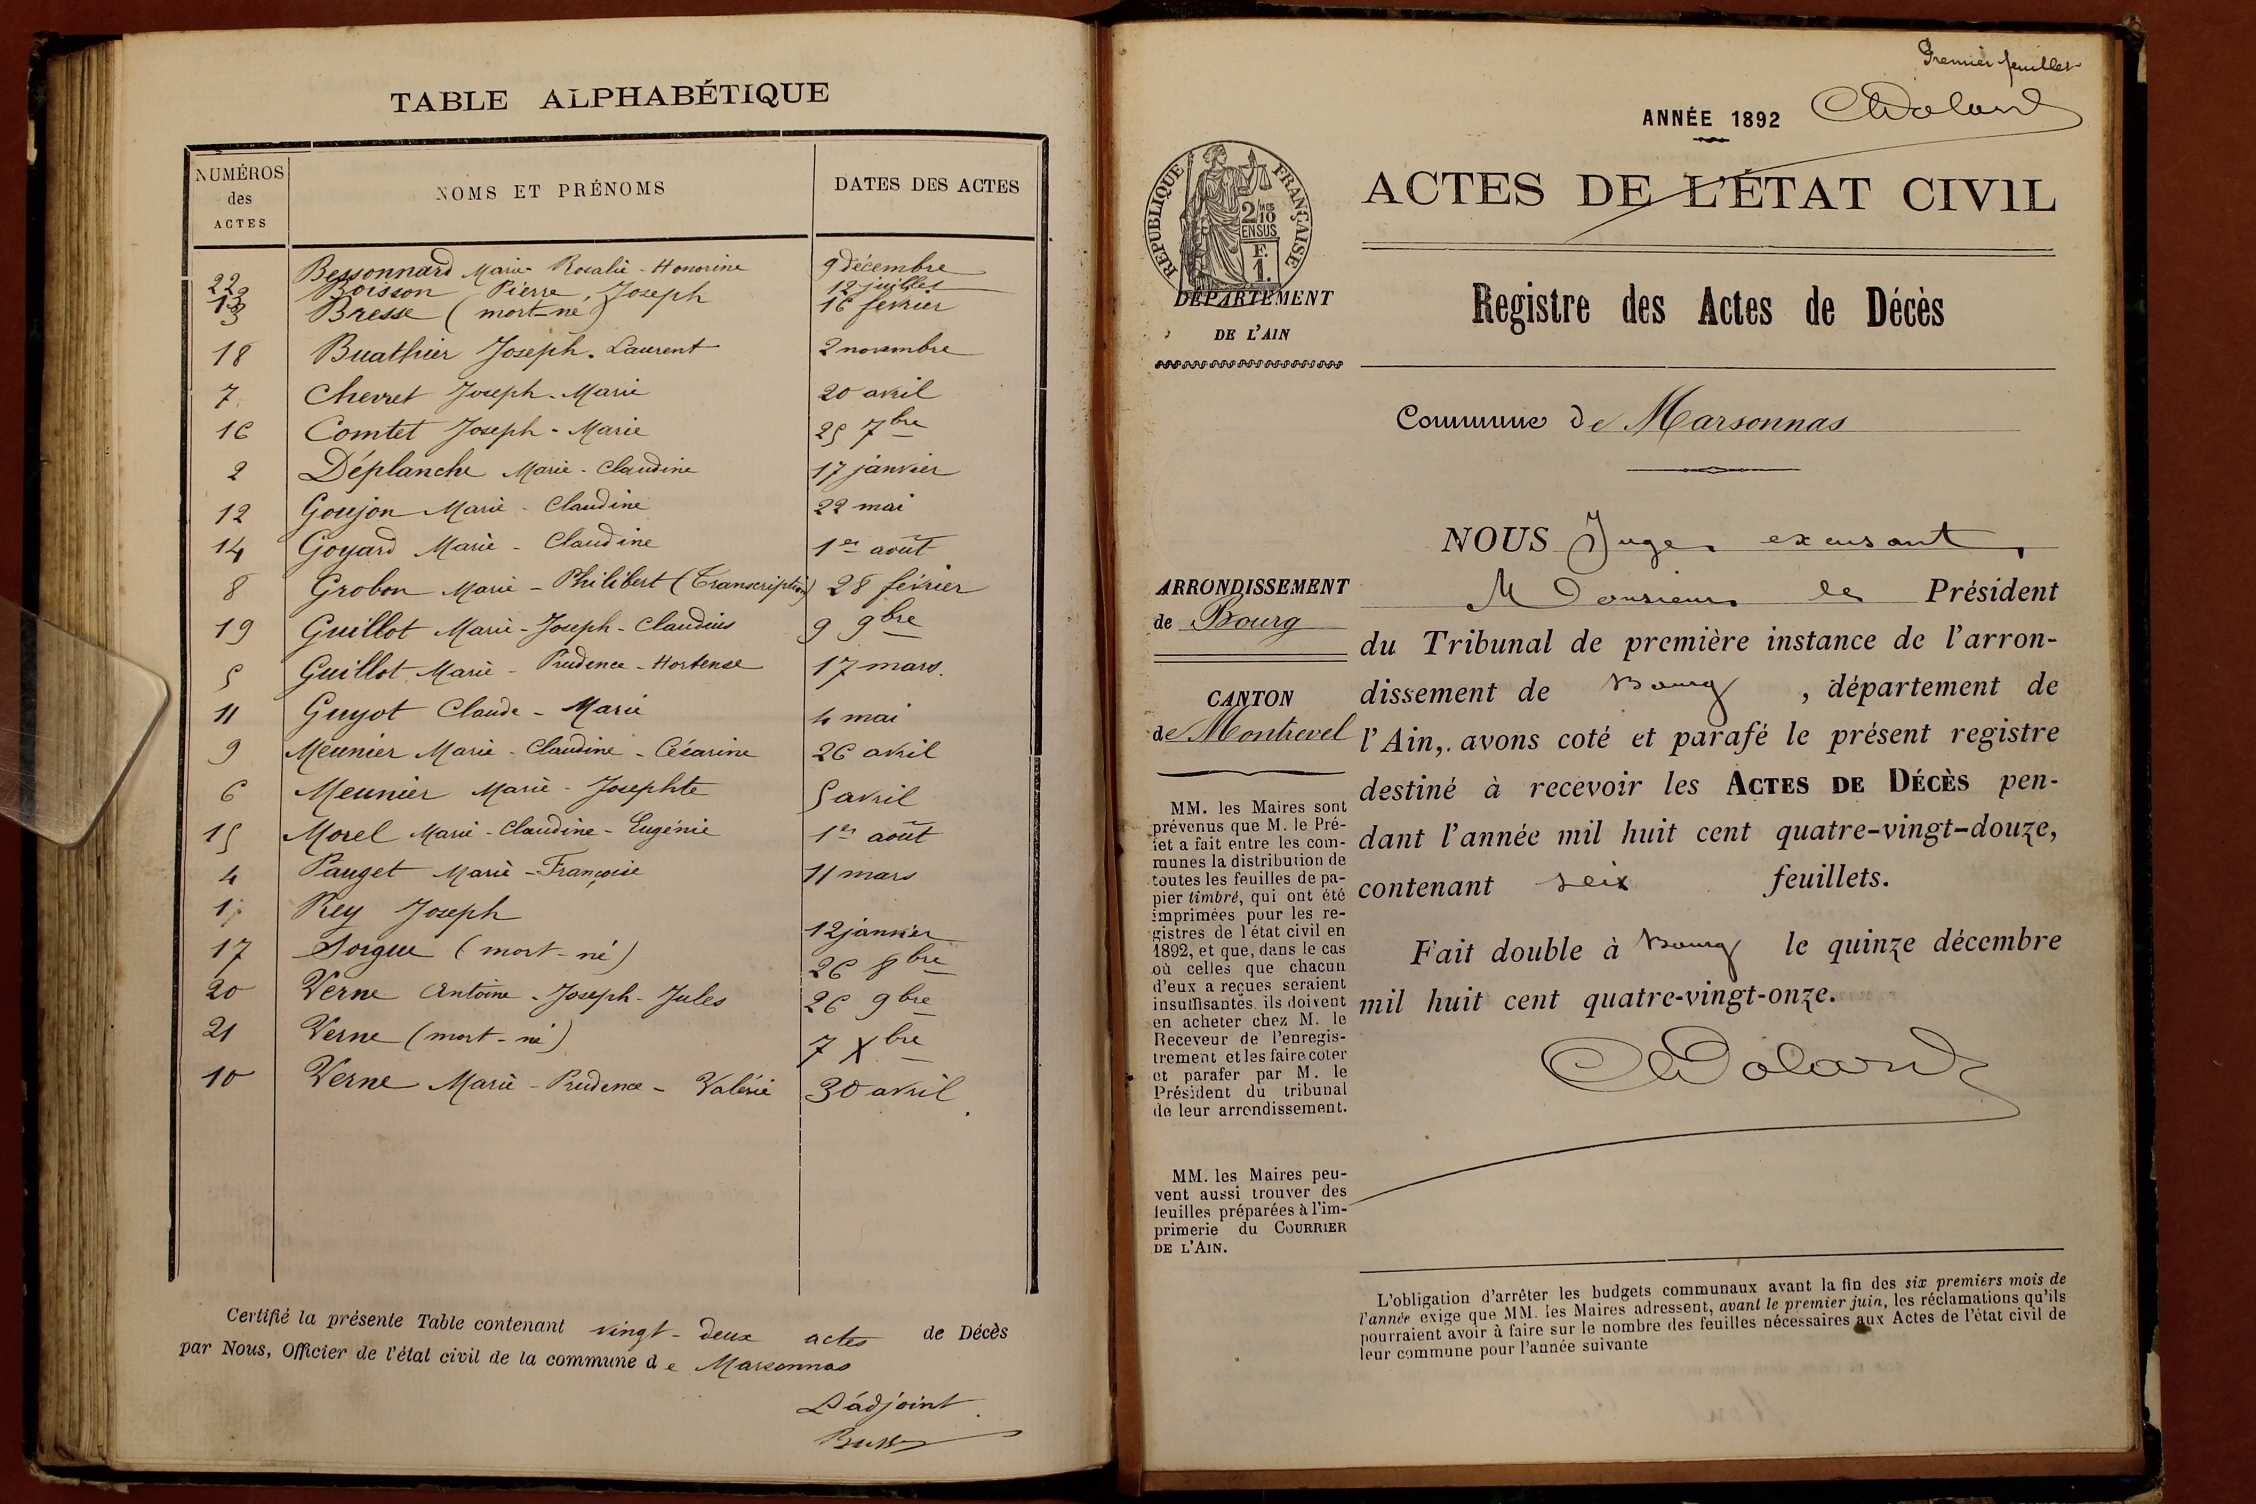 TABLE ALPHABÉTIQUE
NUMÉROS des ACTES NOMS ET PRÉNOMS DATES DES ACTES
22 Bessonnard Marie Rosalie - Honorine 9 décembre
13 Boisson Pierre Joseph 12 juillet
3 Bresse (mort-né) 16 février
18 Buathier Joseph - Laurent 2 novembre
7 Chevret Joseph - Marie 20 avril
16 Comtet Joseph - Marie 25 7bre
2 Déplanche Marie - Claudine 17 janvier
12 Goujon Marie - Claudine 22 mai
14 Goyard Marie - Claudine 1er août
8 Grobon Marie - Philibert (Transcription) 28 février
19 Guillot Marie - Joseph - Claudius 9 9bre
5 Guillot Marie - Prudence - Hortense 17 mars.
11 Guyot Claude - Marie 4 mai
9 Meunier Marie - Claudine - Césarine 26 avril
6 Meunier Marie - Josephte 5 avril
15 Morel Marie - Claudine - Eugénie 1er août
4 Pauget Marie - Françoise 11 mars
1 Rey Joseph 12 janvier
17 Sorgue (mort-né) 26 8bre
20 Verne Antoine - Joseph - Jules 26 9bre
21 Verne (mort-né) 7 Xbre
10 Verne Marie - Prudence - Valérie 30 avril
Certifié la présente Table contenant vingt-deux actes de Décès
par Nous, Officier de l'état civil de la commune de Marsonnas
L'adjoint
Premier feuillet
ANNÉE 1892
RÉPUBLIQUE FRANÇAISE
2/10 EN SUS
F.
1.
ACTES DE L'ÉTAT CIVIL
DÉPARTEMENT
DE L'AIN
Registre des Actes de Décès
Commune de Marsonnas
ARRONDISSEMENT
de Bourg
CANTON
de Montrevel
MM. les Maires sont
prévenus que M. le Pré-
fet a fait entre les com-
munes la distribution de
toutes les feuilles de pa-
pier timbré, qui ont été
imprimées pour les re-
gistres de l'état civil en
1892, et que, dans le cas
où celles que chacun
d'eux a reçues seraient
insuffisantes, ils doivent
en acheter chez M. le
Receveur de l'enregis-
trement et les faire coter
et parafer par M. le
Président du tribunal
de leur arrondissement.
MM. les Maires peu-
vent aussi trouver des
feuilles préparées à l'im-
primerie du COURRIER
DE L'AIN.
NOUS Juge excusant
Monsieur le Président
du Tribunal de première instance de l'arron-
dissement de Bourg, département de
l'Ain, avons coté et parafé le présent registre
destiné à recevoir les ACTES DE DÉCÈS pen-
dant l'année mil huit cent quatre-vingt-douze,
contenant seix feuillets.
Fait double à Bourg le quinze décembre
mil huit cent quatre-vingt-onze.
L'obligation d'arrêter les budgets communaux avant la fin des six premiers mois de
l'année exige que MM. les Maires adressent, avant le premier juin, les réclamations qu'ils
pourraient avoir à faire sur le nombre des feuilles nécessaires aux Actes de l'état civil de
leur commune pour l'année suivante